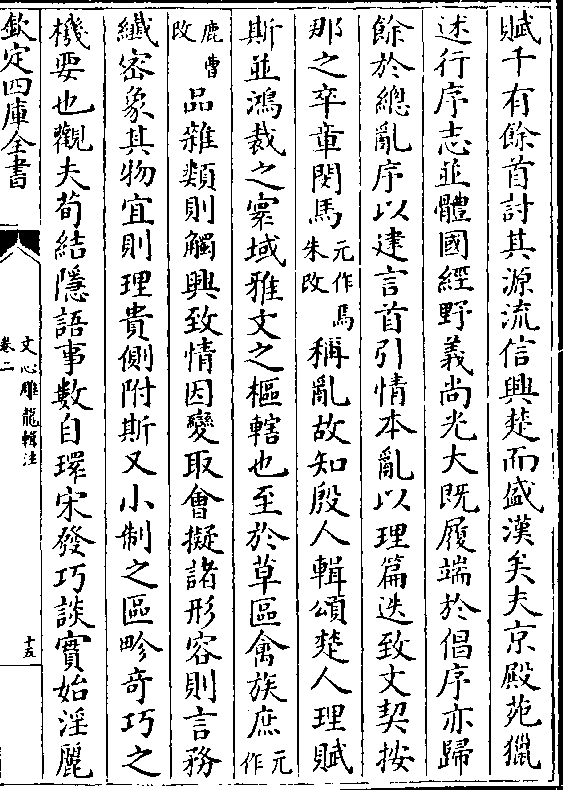 賦千有餘首討其源流信興楚而盛漢矣夫京殿苑獵
述行序志並體國經野義尚光大既履端於倡序亦歸
餘於總亂序以建言首引情本亂以理篇迭致文契按
那之卒章閔馬元作焉朱改稱亂故知殷人輯頌楚人理賦
斯並鴻裁之寰域雅文之樞轄也至於草區禽族庶元作
鹿曹改品雜類則觸興致情因變取會擬諸形容則言務
纖密象其物宜則理貴側附斯又小制之區畛奇巧之
機要也觀夫荀結隱語事數自環宋發巧談實始淫麗
欽定四庫全書
文心雕龍輯注
卷二
十五